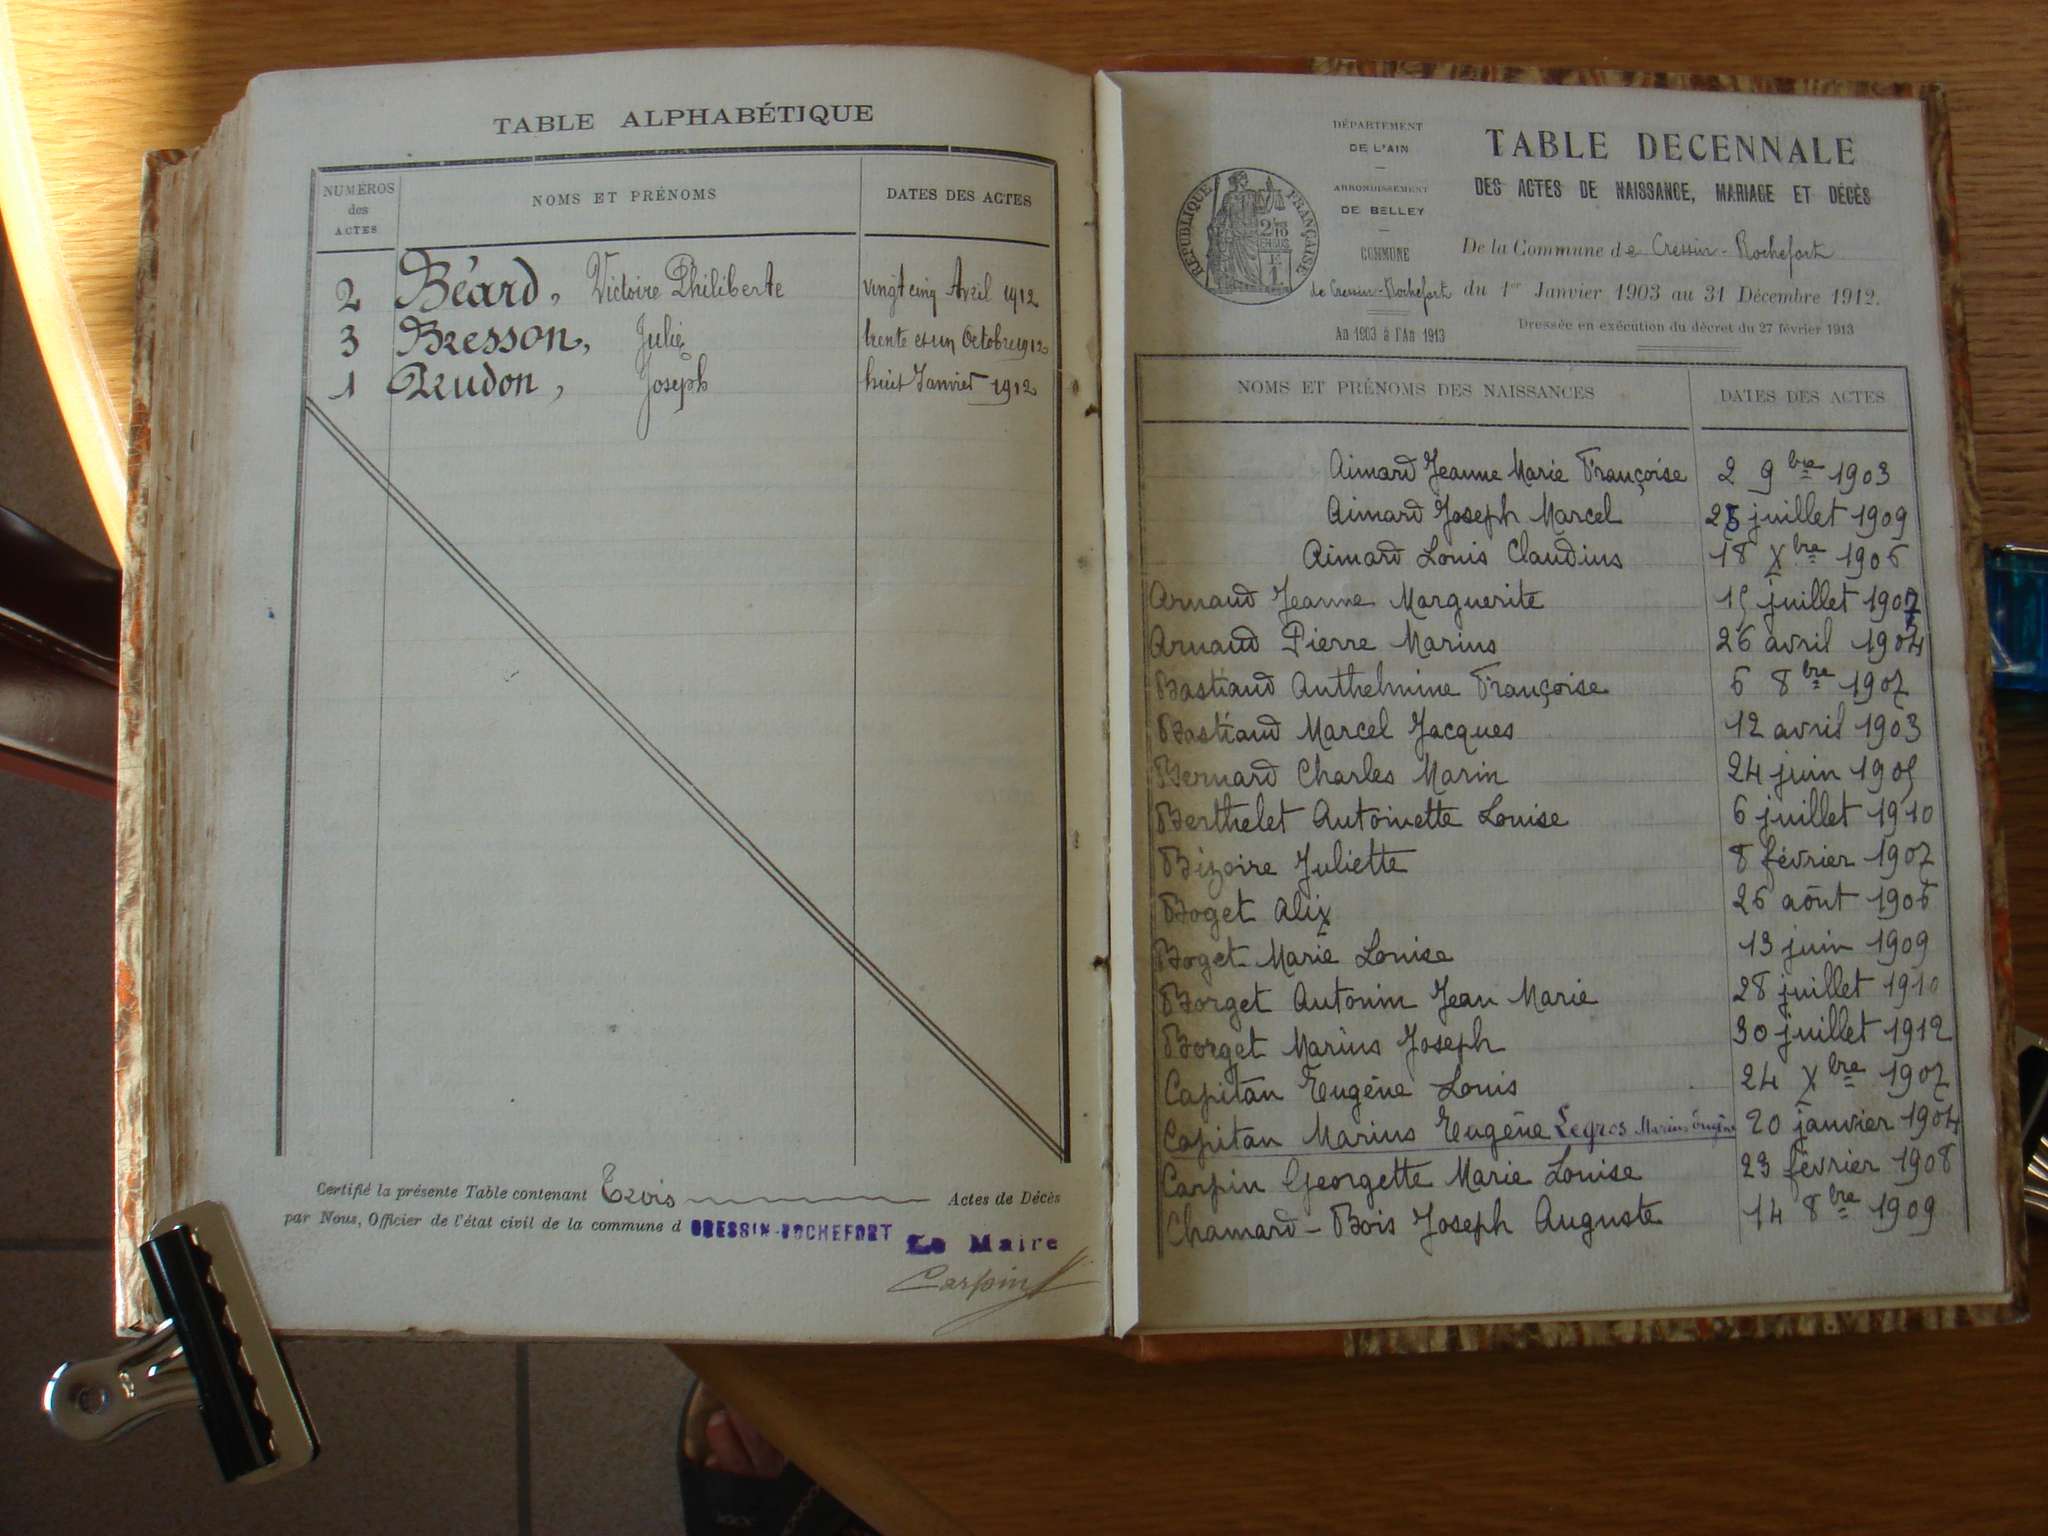 TABLE ALPHABÉTIQUE
NUMÉROS des ACTES
NOMS ET PRÉNOMS
DATES DES ACTES
2 Béard, Victoire Philiberte vingt cinq Avril 1912
3 Bresson, Julie trente et un Octobre 1912
1 Joseph huit Janvier 1912
Certifié la présente Table contenant Trois Actes de Décès
par Nous, Officier de l'état civil de la commune d CRESSIN-ROCHEFORT
Le Maire
Carpin
DÉPARTEMENT
DE L'AIN
ARRONDISSEMENT
DE BELLEY
COMMUNE
de Cressin-Rochefort
An 1903 à l'An 1913
RÉPUBLIQUE FRANÇAISE
TABLE DECENNALE
DES ACTES DE NAISSANCE, MARIAGE ET DÉCÈS
De la Commune de Cressin-Rochefort
du 1er Janvier 1903 au 31 Décembre 1912.
Dressée en exécution du décret du 27 février 1913
NOMS ET PRÉNOMS DES NAISSANCES
DATES DES ACTES
Aimard Jeanne Marie Françoise 2 9bre 1903
Aimard Joseph Marcel juillet 1909
Aimard Louis Claudius 18 Xbre 1906
Arnaud Jeanne Marguerite 15 juillet 1907
Arnaud Pierre Marius 26 avril 1904
Bastiand Anthelmine Françoise 6 8bre 1907
Bastiand Marcel Jacques 12 avril 1903
Bernard Charles Marin 24 juin 1905
Berthelet Antoinette Louise 6 juillet 1910
Bizoire Juliette 8 février 1907
Boget Alix 26 août 1906
Boget Marie Louise 13 juin 1909
Borget Antonin Jean Marie 28 juillet 1910
Borget Marius Joseph 30 juillet 1912
Capitan Eugène Louis 24 Xbre 1907
Capitan Marius Eugène Legros Marius Eugène 20 janvier 1904
Carpin Georgette Marie Louise 23 février 1908
Chamard-Bois Joseph Auguste 14 8bre 1909